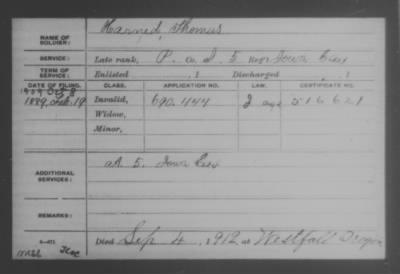 NAME OF SOLDIER: Harned, Thomas
SERVICE: Late rank, P. Co. I, 5 Regt Iowa Cav
TERM OF SERVICE: Enlisted , 1 Discharged , 1
DATE OF FILING. CLASS. APPLICATION NO. LAW. CERTIFICATE NO.
1907 Oct 8
1889, Feb. 19 Invalid, 690.444 516621
Widow,
Minor,
ADDITIONAL SERVICES: A. 5. Iowa Cav
REMARKS:
Died Sep 4, 1912, at Westfall Oregon